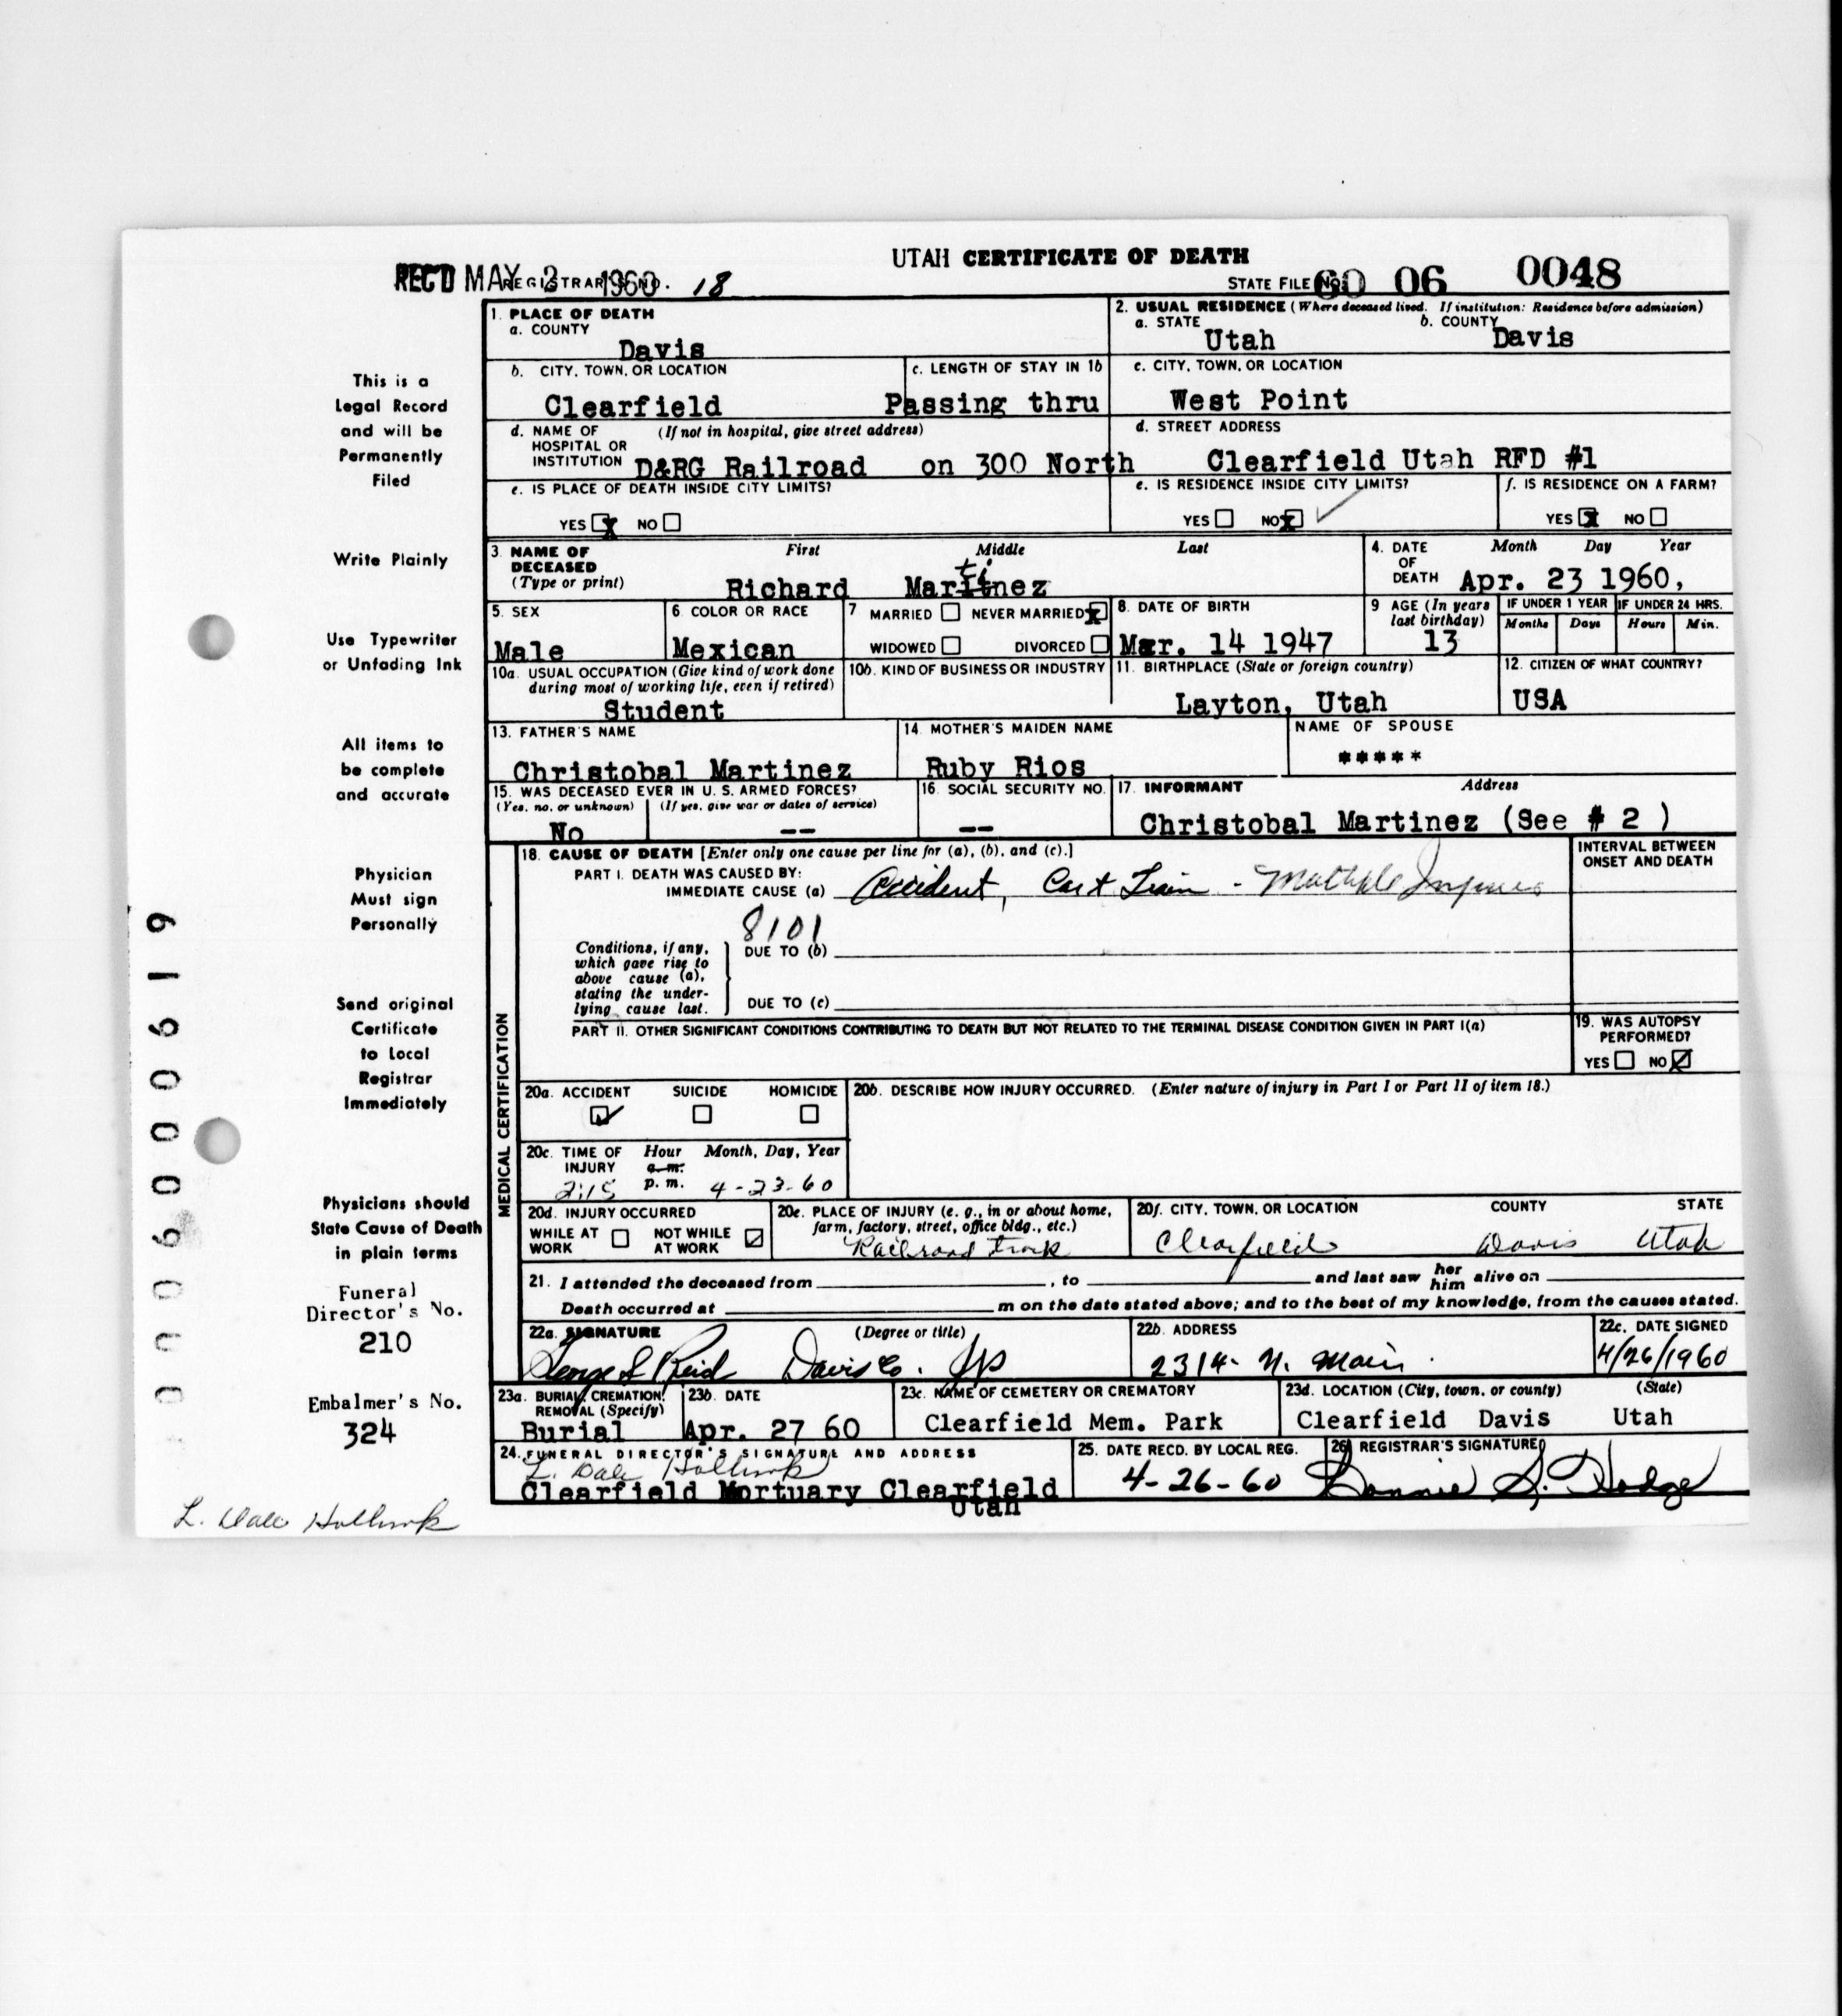 UTAH CERTIFICATE OF DEATH
REC'D MAY 2 1960 REGISTRAR'S NO. 18
STATE FILE NO. 60 06 0048
1. PLACE OF DEATH
a. COUNTY
Davis
2. USUAL RESIDENCE (Where deceased lived. If institution: Residence before admission)
a. STATE b. COUNTY
Utah Davis
b. CITY, TOWN, OR LOCATION
Clearfield
c. LENGTH OF STAY IN 1b
Passing thru
c. CITY, TOWN, OR LOCATION
West Point
d. NAME OF (If not in hospital, give street address)
HOSPITAL OR
INSTITUTION D&RG Railroad on 300 North
d. STREET ADDRESS
Clearfield Utah RFD #1
e. IS PLACE OF DEATH INSIDE CITY LIMITS?
YES X NO
e. IS RESIDENCE INSIDE CITY LIMITS?
YES NO X
f. IS RESIDENCE ON A FARM?
YES X NO
3. NAME OF First Middle Last
DECEASED
(Type or print)
ti
Richard Martinez
4. DATE Month Day Year
OF
DEATH Apr. 23 1960,
5. SEX
Male
6. COLOR OR RACE
Mexican
7 MARRIED NEVER MARRIED X
WIDOWED DIVORCED
8. DATE OF BIRTH
Mar. 14 1947
9 AGE (In years
last birthday)
13
IF UNDER 1 YEAR IF UNDER 24 HRS.
Months Days Hours Min.
10a. USUAL OCCUPATION (Give kind of work done
during most of working life, even if retired)
Student
10b. KIND OF BUSINESS OR INDUSTRY
11. BIRTHPLACE (State or foreign country)
Layton, Utah
12. CITIZEN OF WHAT COUNTRY?
USA
13. FATHER'S NAME
Christobal Martinez
14. MOTHER'S MAIDEN NAME
Ruby Rios
NAME OF SPOUSE
*****
15. WAS DECEASED EVER IN U. S. ARMED FORCES?
(Yes, no, or unknown) (If yes, give war or dates of service)
No --
16. SOCIAL SECURITY NO.
--
17. INFORMANT Address
Christobal Martinez (See # 2 )
MEDICAL CERTIFICATION
18. CAUSE OF DEATH [Enter only one cause per line for (a), (b), and (c).]
INTERVAL BETWEEN
ONSET AND DEATH
PART I. DEATH WAS CAUSED BY:
IMMEDIATE CAUSE (a) Accident, Car & Train - Multiple Injuries
8101
Conditions, if any,
which gave rise to
above cause (a),
stating the under-
lying cause last.
DUE TO (b)
DUE TO (c)
PART II. OTHER SIGNIFICANT CONDITIONS CONTRIBUTING TO DEATH BUT NOT RELATED TO THE TERMINAL DISEASE CONDITION GIVEN IN PART I(a)
19. WAS AUTOPSY
PERFORMED?
YES NO
20a. ACCIDENT SUICIDE HOMICIDE
20b. DESCRIBE HOW INJURY OCCURRED. (Enter nature of injury in Part I or Part II of item 18.)
20c. TIME OF Hour Month, Day, Year
INJURY a. m.
2:15 p. m. 4-23-60
20d. INJURY OCCURRED
WHILE AT NOT WHILE
WORK AT WORK
20e. PLACE OF INJURY (e. g., in or about home,
farm, factory, street, office bldg., etc.)
Railroad Track
20f. CITY, TOWN, OR LOCATION COUNTY STATE
Clearfield Davis Utah
21. I attended the deceased from , to and last saw her him alive on
Death occurred at m on the date stated above; and to the best of my knowledge, from the causes stated.
22a. SIGNATURE (Degree or title)
George S Reid Davis Co. JP
22b. ADDRESS
2314- N. Main.
22c. DATE SIGNED
4/26/1960
23a. BURIAL, CREMATION,
REMOVAL (Specify)
Burial
23b. DATE
Apr. 27 60
23c. NAME OF CEMETERY OR CREMATORY
Clearfield Mem. Park
23d. LOCATION (City, town, or county) (State)
Clearfield Davis Utah
24. FUNERAL DIRECTOR'S SIGNATURE AND ADDRESS
L. Dale Holbrook
Clearfield Mortuary Clearfield
Utah
25. DATE RECD. BY LOCAL REG.
4-26-60
26. REGISTRAR'S SIGNATURE
Bonnie S. Hodge
This is a
Legal Record
and will be
Permanently
Filed
Write Plainly
Use Typewriter
or Unfading Ink
All items to
be complete
and accurate
Physician
Must sign
Personally
Send original
Certificate
to Local
Registrar
Immediately
Physicians should
State Cause of Death
in plain terms
Funeral
Director's No.
210
Embalmer's No.
324
L. Dale Holbrook
000600619